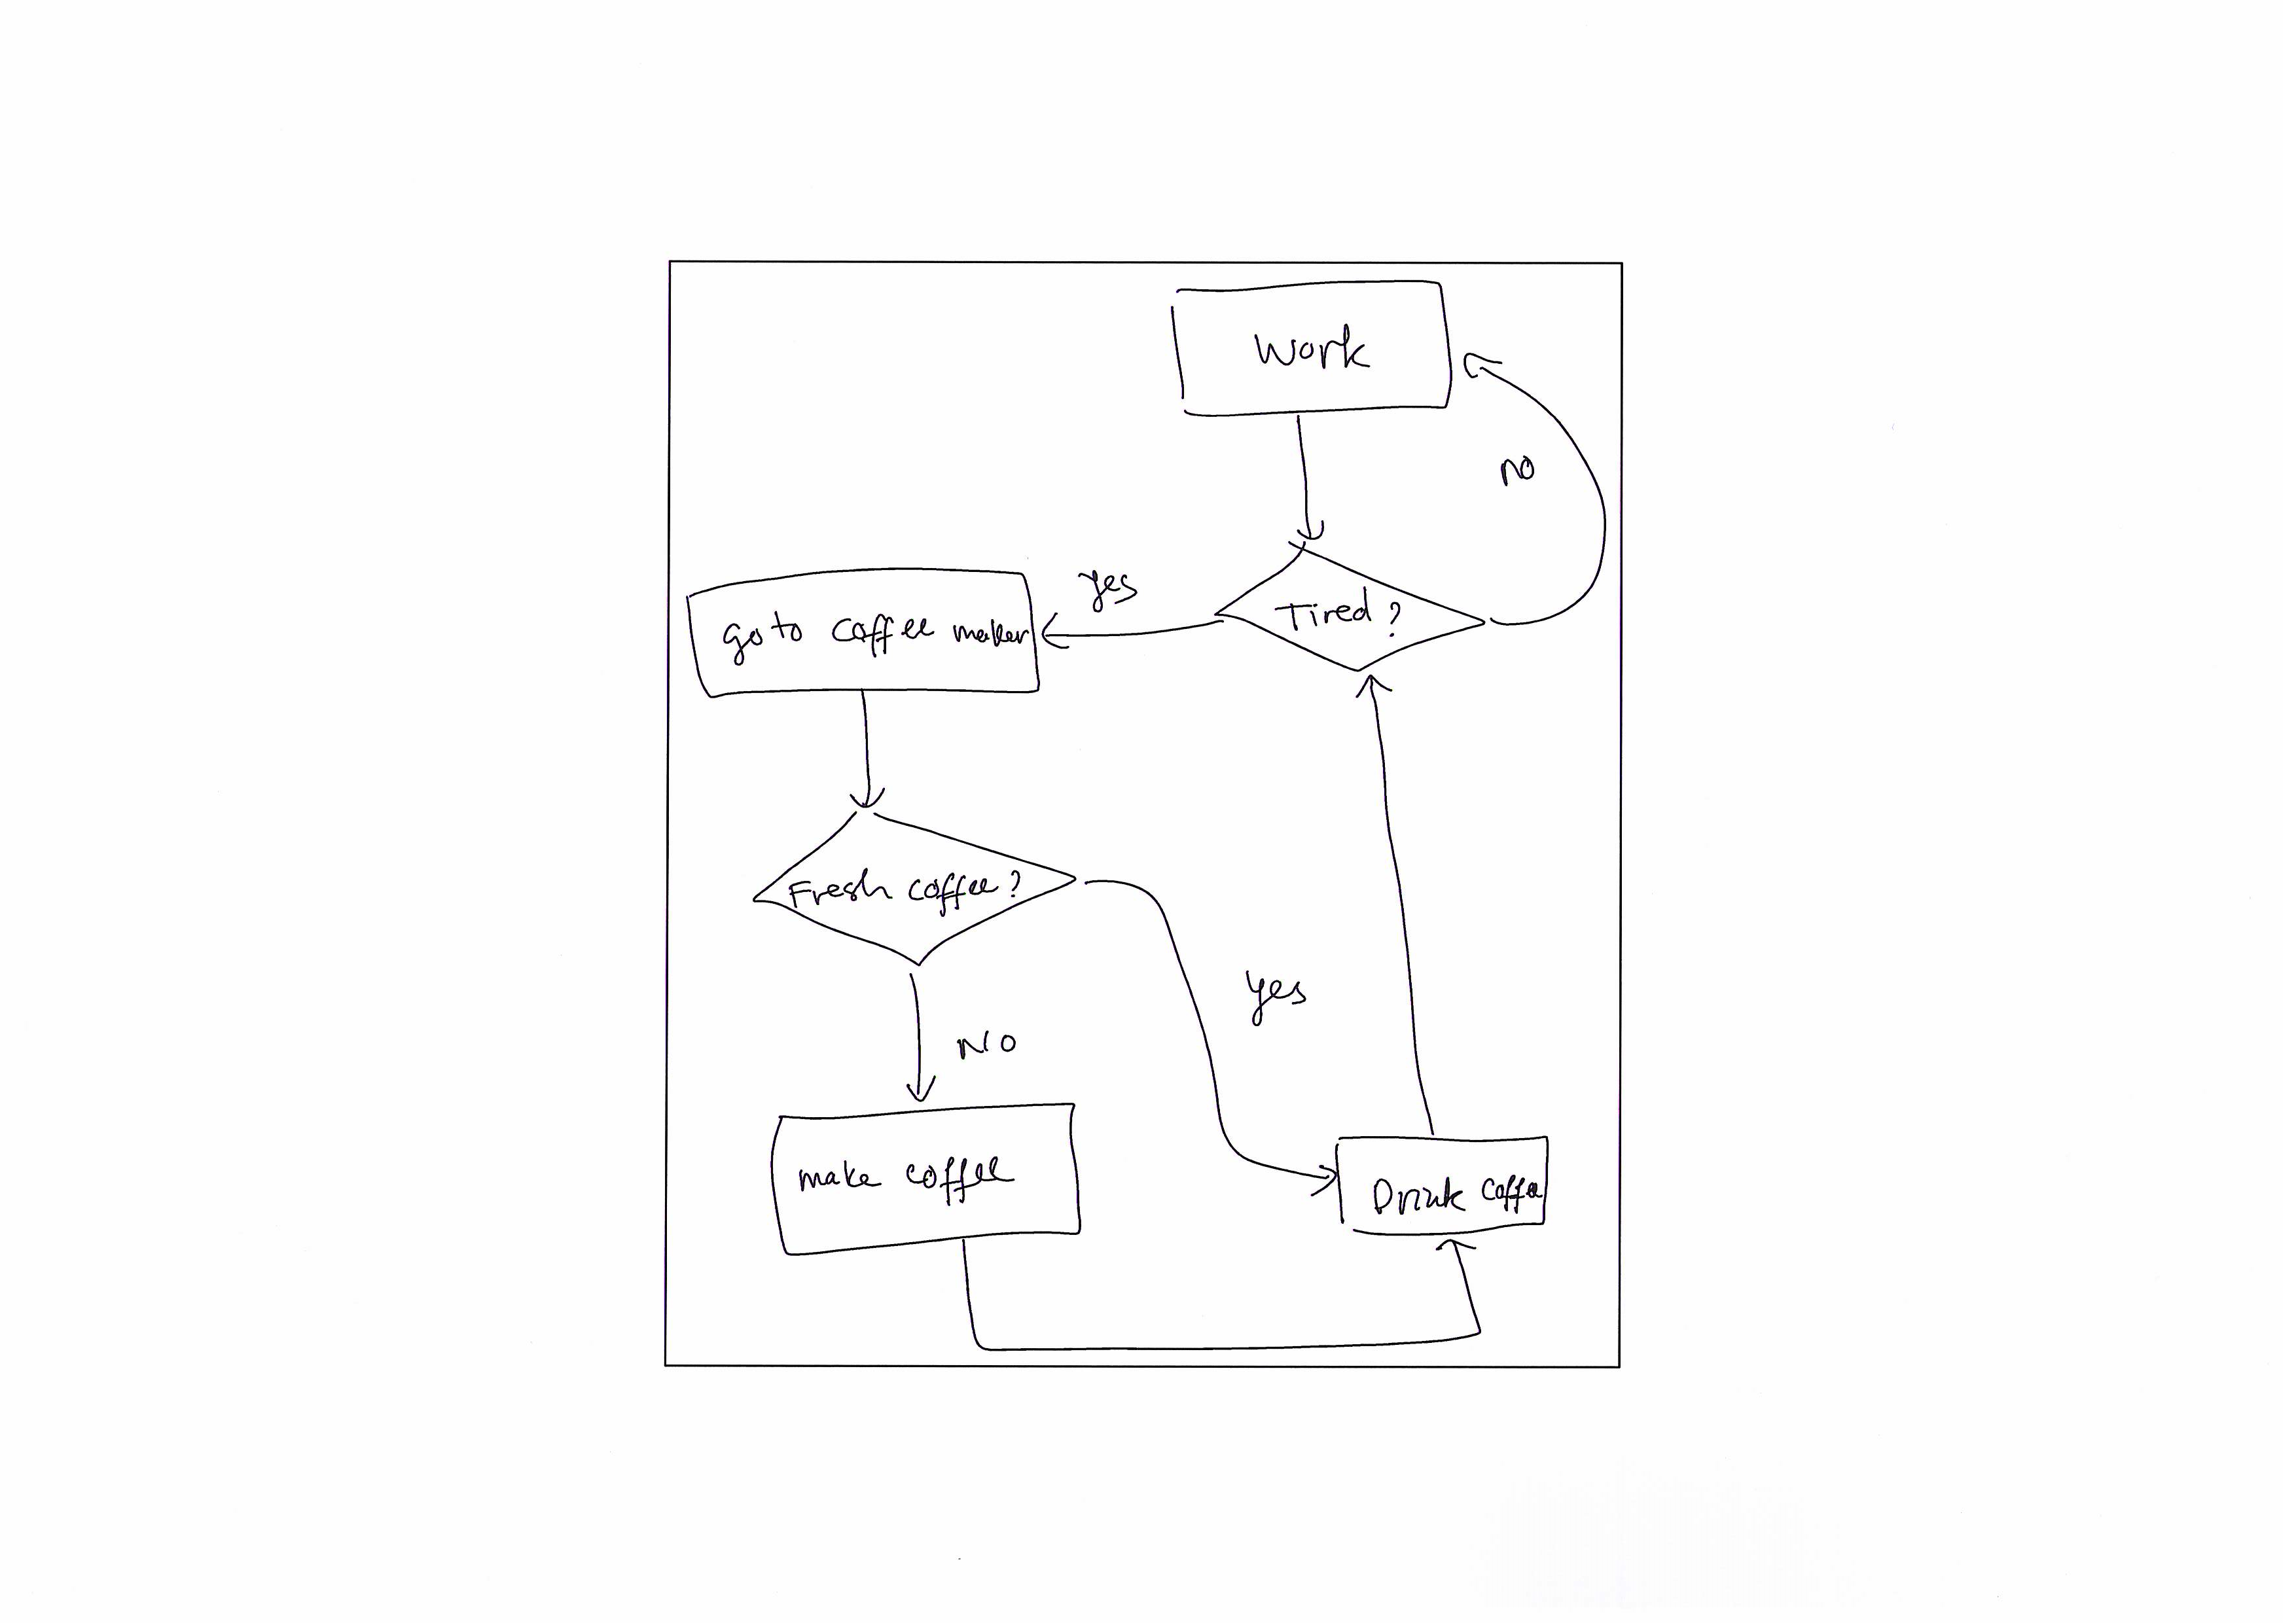 Work
no
yes
Tired ?
go to coffee maker
Fresh coffee ?
yes
No
make coffee
Drink coffe